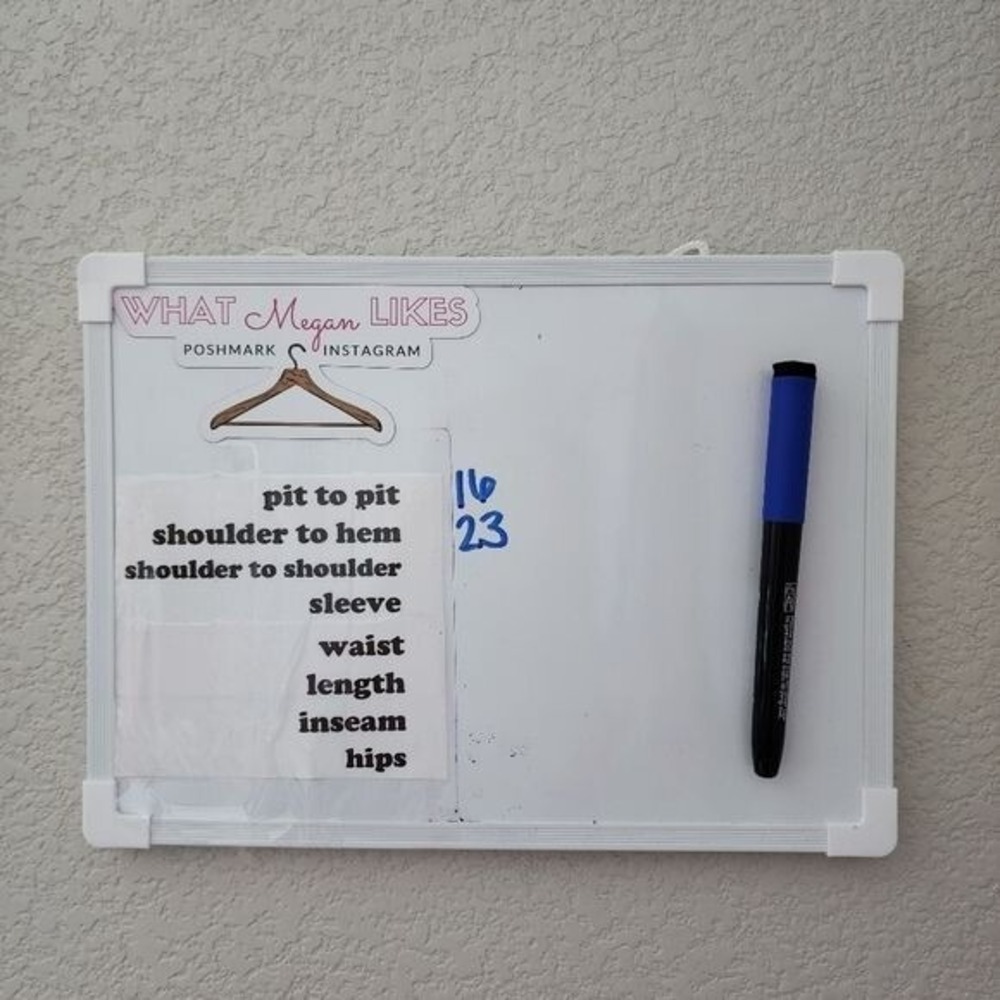 WHAT Megan LIKES
POSHMARK INSTAGRAM
pit to pit 16
shoulder to hem 23
shoulder to shoulder
sleeve
waist
length
inseam
hips